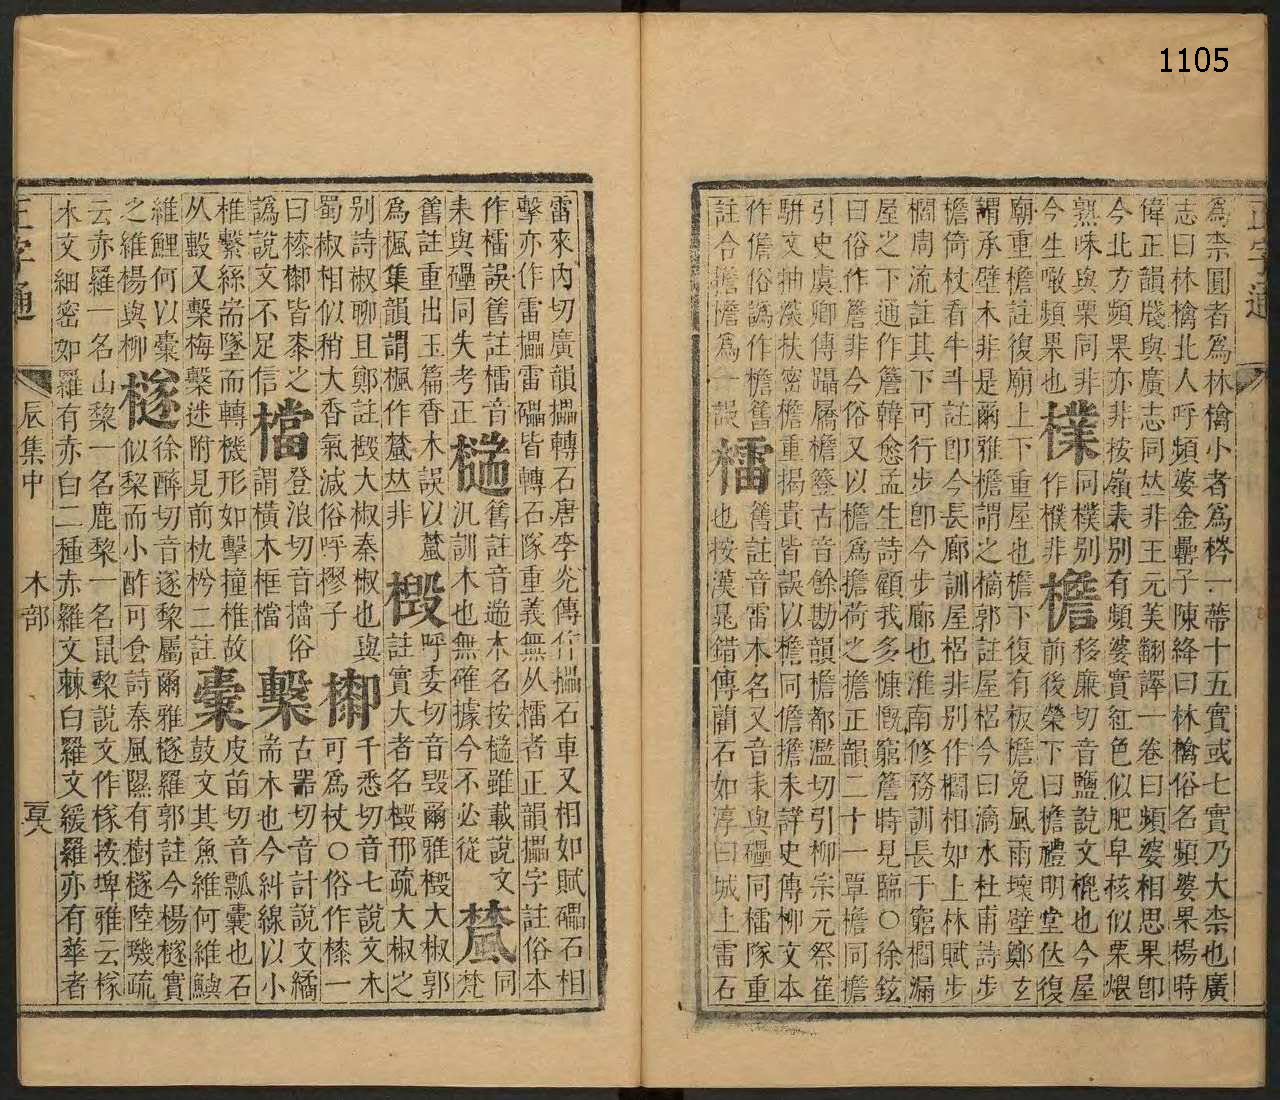 1105
正字通
為柰圓者為林檎小者為梣一蒂十五實或七實乃大柰也廣
志曰林檎北人呼頻婆金罍子陳絳曰林檎俗名頻婆果楊時
偉正韻牋與廣志同𠀤非王元美翻譯一卷曰頻婆相思果卽
今北方頻果亦非按嶺表別有頻婆實紅色似肥皁核似栗煨
熟味與栗同非
今生噉頻果也
樸
同樸別
作檏非
檐
移廉切音鹽說文梍也今屋
前後榮下曰檐禮明堂位復
廟重檐註復廟上下重屋也檐下復有板檐免風雨壞壁鄭玄
謂承壁木非是爾雅檐謂之樀郭註屋梠今曰滴水杜甫詩步
檐倚杖看牛斗註卽今長廊訓屋梠非別作櫩相如上林賦步
櫩周流註其下可行步卽今步廊也淮南修務訓長于窮櫩漏
屋之下通作簷韓愈孟生詩顧我多慷慨窮簷時見臨○徐鉉
曰俗作簷非今俗又以檐為擔荷之擔正韻二十一單檐同擔
引史虞卿傳躡屩檐簦古音餘勘韻檐都濫切引柳宗元祭崔
駢文抽葇扶密檐重揭貴皆誤以檐同儋擔未詳史傳柳文本
作儋俗譌作檐舊
註合擔檐為一誤
檑
舊註音雷木名又音耒與礧同檑隊重
也按漢鼂錯傳藺石如淳曰城上雷石
雷來內切廣韻攂轉石唐李光傳作攂石車又相如賦礧石相
擊亦作雷攂雷礧皆轉石隊重義無从檑者正韻攂字註俗本
作檑誤舊註檑音
耒與礧同失考正
檤
舊註音遒木名按檤雖載說文
汎訓木也無確據今不必從
檒
同
梵
舊註重出玉篇香木誤以檒
為楓集韻謂楓作檒𠀤非
檓
呼委切音毀爾雅檓大椒郭
註實大者名檓邢疏大椒之
別詩椒聊且鄭註檓大椒秦椒也與
蜀椒相似稍大香氣減俗呼樛子
㯡
千悉切音七說文木
可為杖○俗作榛一
曰榛㯡皆桼之
譌說文不足信
檔
登浪切音擋俗
謂橫木框檔
檕
古器切音計說文繘
耑木也今糾線以小
椎繫絲耑墜而轉機形如擊撞椎故
从毄又檕梅檕迷附見前枕枍二註
橐
皮苗切音瓢囊也石
鼓文其魚維何維鱮
維鯉何以橐
之維楊與柳
檖
徐醉切音遂黎屬爾雅檖羅郭註今楊檖實
似棃而小酢可食詩秦風隰有樹檖陸璣疏
云赤羅一名山黎一名鹿黎一名鼠黎說文作𣔾按埤雅云𣔾
木文細密如羅有赤白二種赤羅文棘白羅文緩羅亦有華者
正字通
辰集中
木部